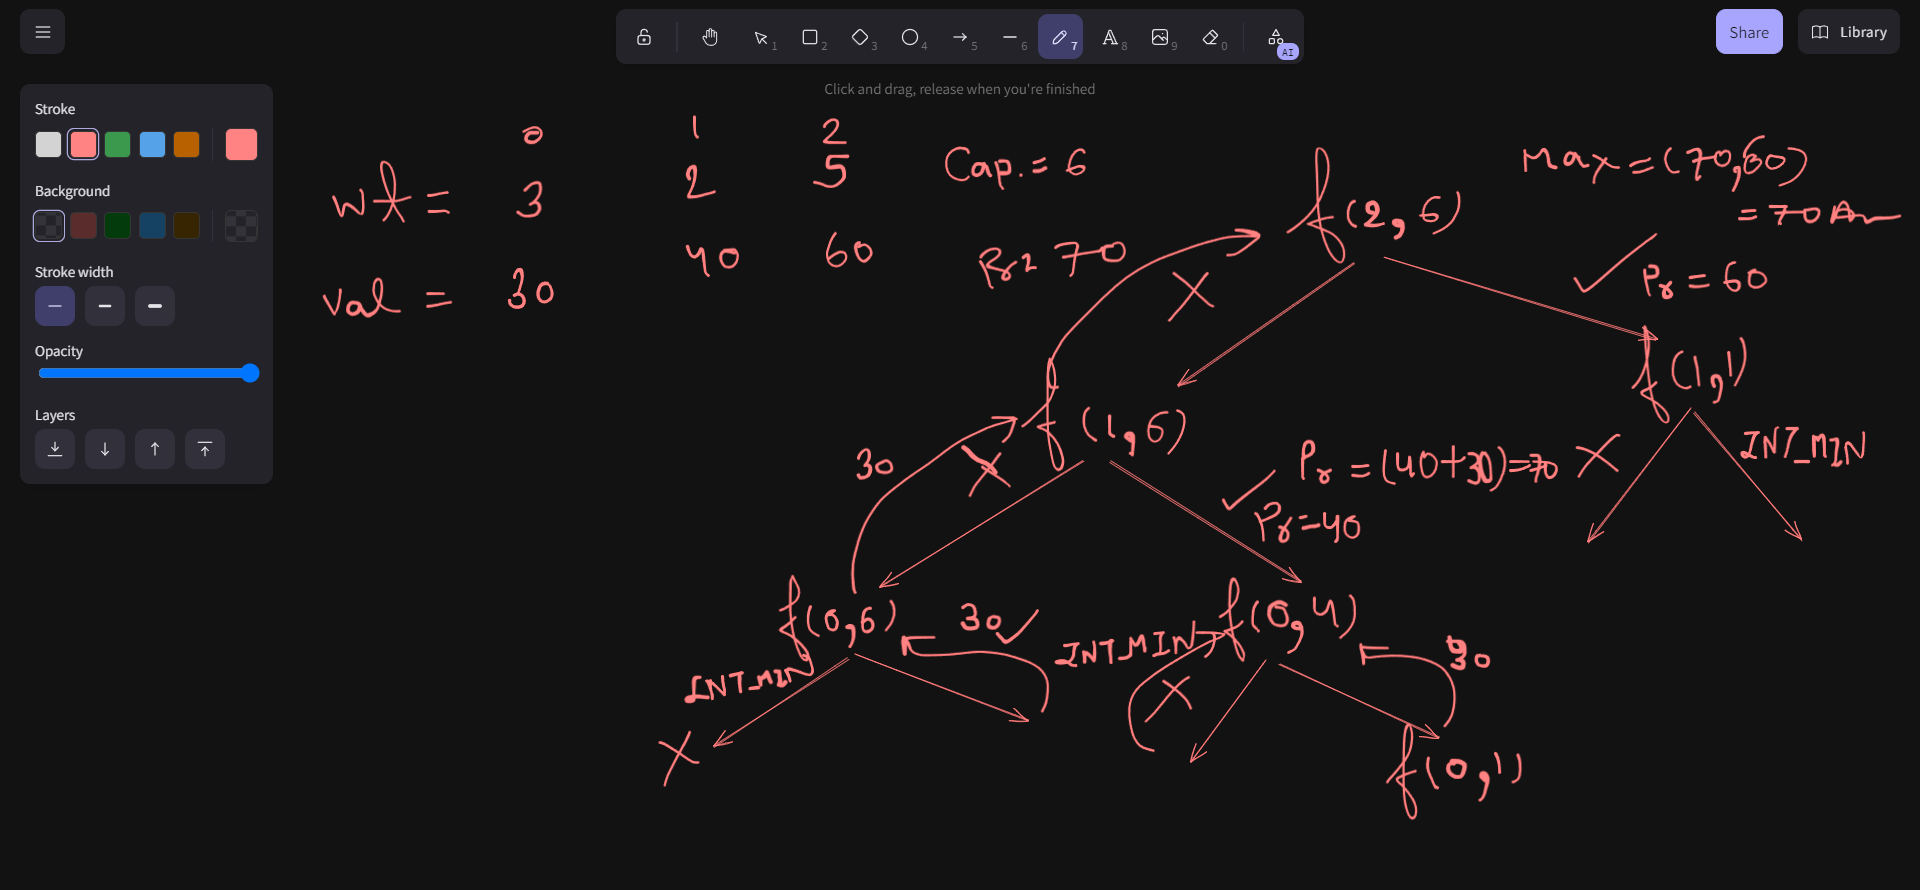 1 2 3 4 5 6 7 8 9 0 AI
Share
Library
Click and drag, release when you're finished
Stroke
Background
Stroke width
Opacity
Layers
0 1 2
wt = 3 2 5
val = 30 40 60
Cap. = 6
Pr = 70
f(2,6)
Max = (70,60)
= 70 Ans
X
✓ Pr = 60
f(1,6)
f(1,1)
30
X
Pr = (40+30)=70
✓ Pr=40
X
INT_MIN
f(0,6)
30 ✓
INT_MIN
f(0,4)
30
INT_MIN
X
X
f(0,1)